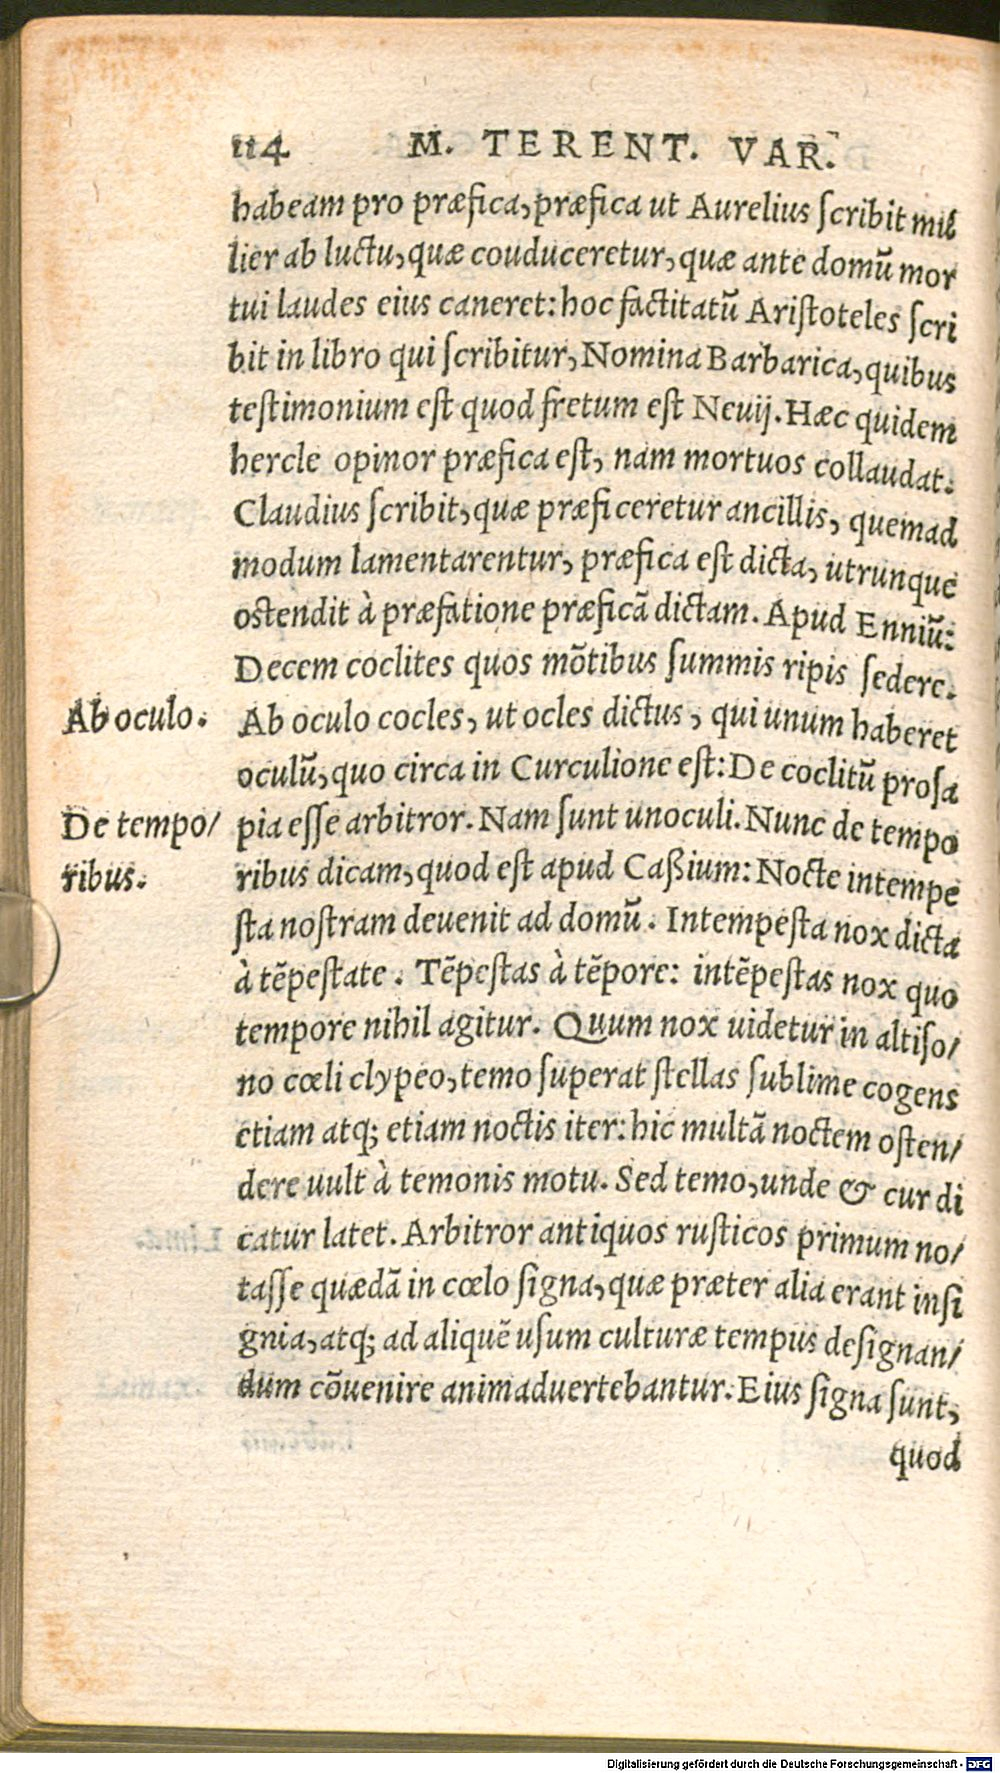 114 M. TERENT. VAR.
habeam pro præfica, præfica ut Aurelius ſcribit mu
lier ab luctu, quæ couduceretur, quæ ante domū mor
tui laudes eius caneret: hoc factitatū Ariſtoteles ſcri
bit in libro qui ſcribitur, Nomina Barbarica, quibus
teſtimonium eſt quod fretum eſt Neuij. Hæc quidem
hercle opinor præfica eſt, nam mortuos collaudat.
Claudius ſcribit, quæ præficeretur ancillis, quemad
modum lamentarentur, præfica eſt dicta, utrunque
oſtendit à præfatione præficā dictam. Apud Enniū:
Decem coclites quos mōtibus ſummis ripis ſedere.
Ab oculo.
Ab oculo cocles, ut ocles dictus, qui unum haberet
oculū, quo circa in Curculione eſt: De coclitū proſa
De tempo/
pia eſſe arbitror. Nam ſunt unoculi. Nunc de tempo
ribus.
ribus dicam, quod eſt apud Caßium: Nocte intempe
ſta noſtram deuenit ad domū. Intempeſta nox dicta
à tēpeſtate. Tēpeſtas à tēpore: intēpeſtas nox quo
tempore nihil agitur. Quum nox uidetur in altiſo/
no cœli clypeo, temo ſuperat ſtellas ſublime cogens
etiam atq; etiam noctis iter: hic multā noctem oſten/
dere uult à temonis motu. Sed temo, unde & cur di
catur latet. Arbitror antiquos ruſticos primum no/
taſſe quædā in cœlo ſigna, quæ præter alia erant inſi
gnia, atq; ad aliquē uſum culturæ tempus deſignan/
dum cōuenire animaduertebantur. Eius ſigna ſunt,
quod
Digitalisierung gefördert durch die Deutsche Forschungsgemeinschaft - DFG